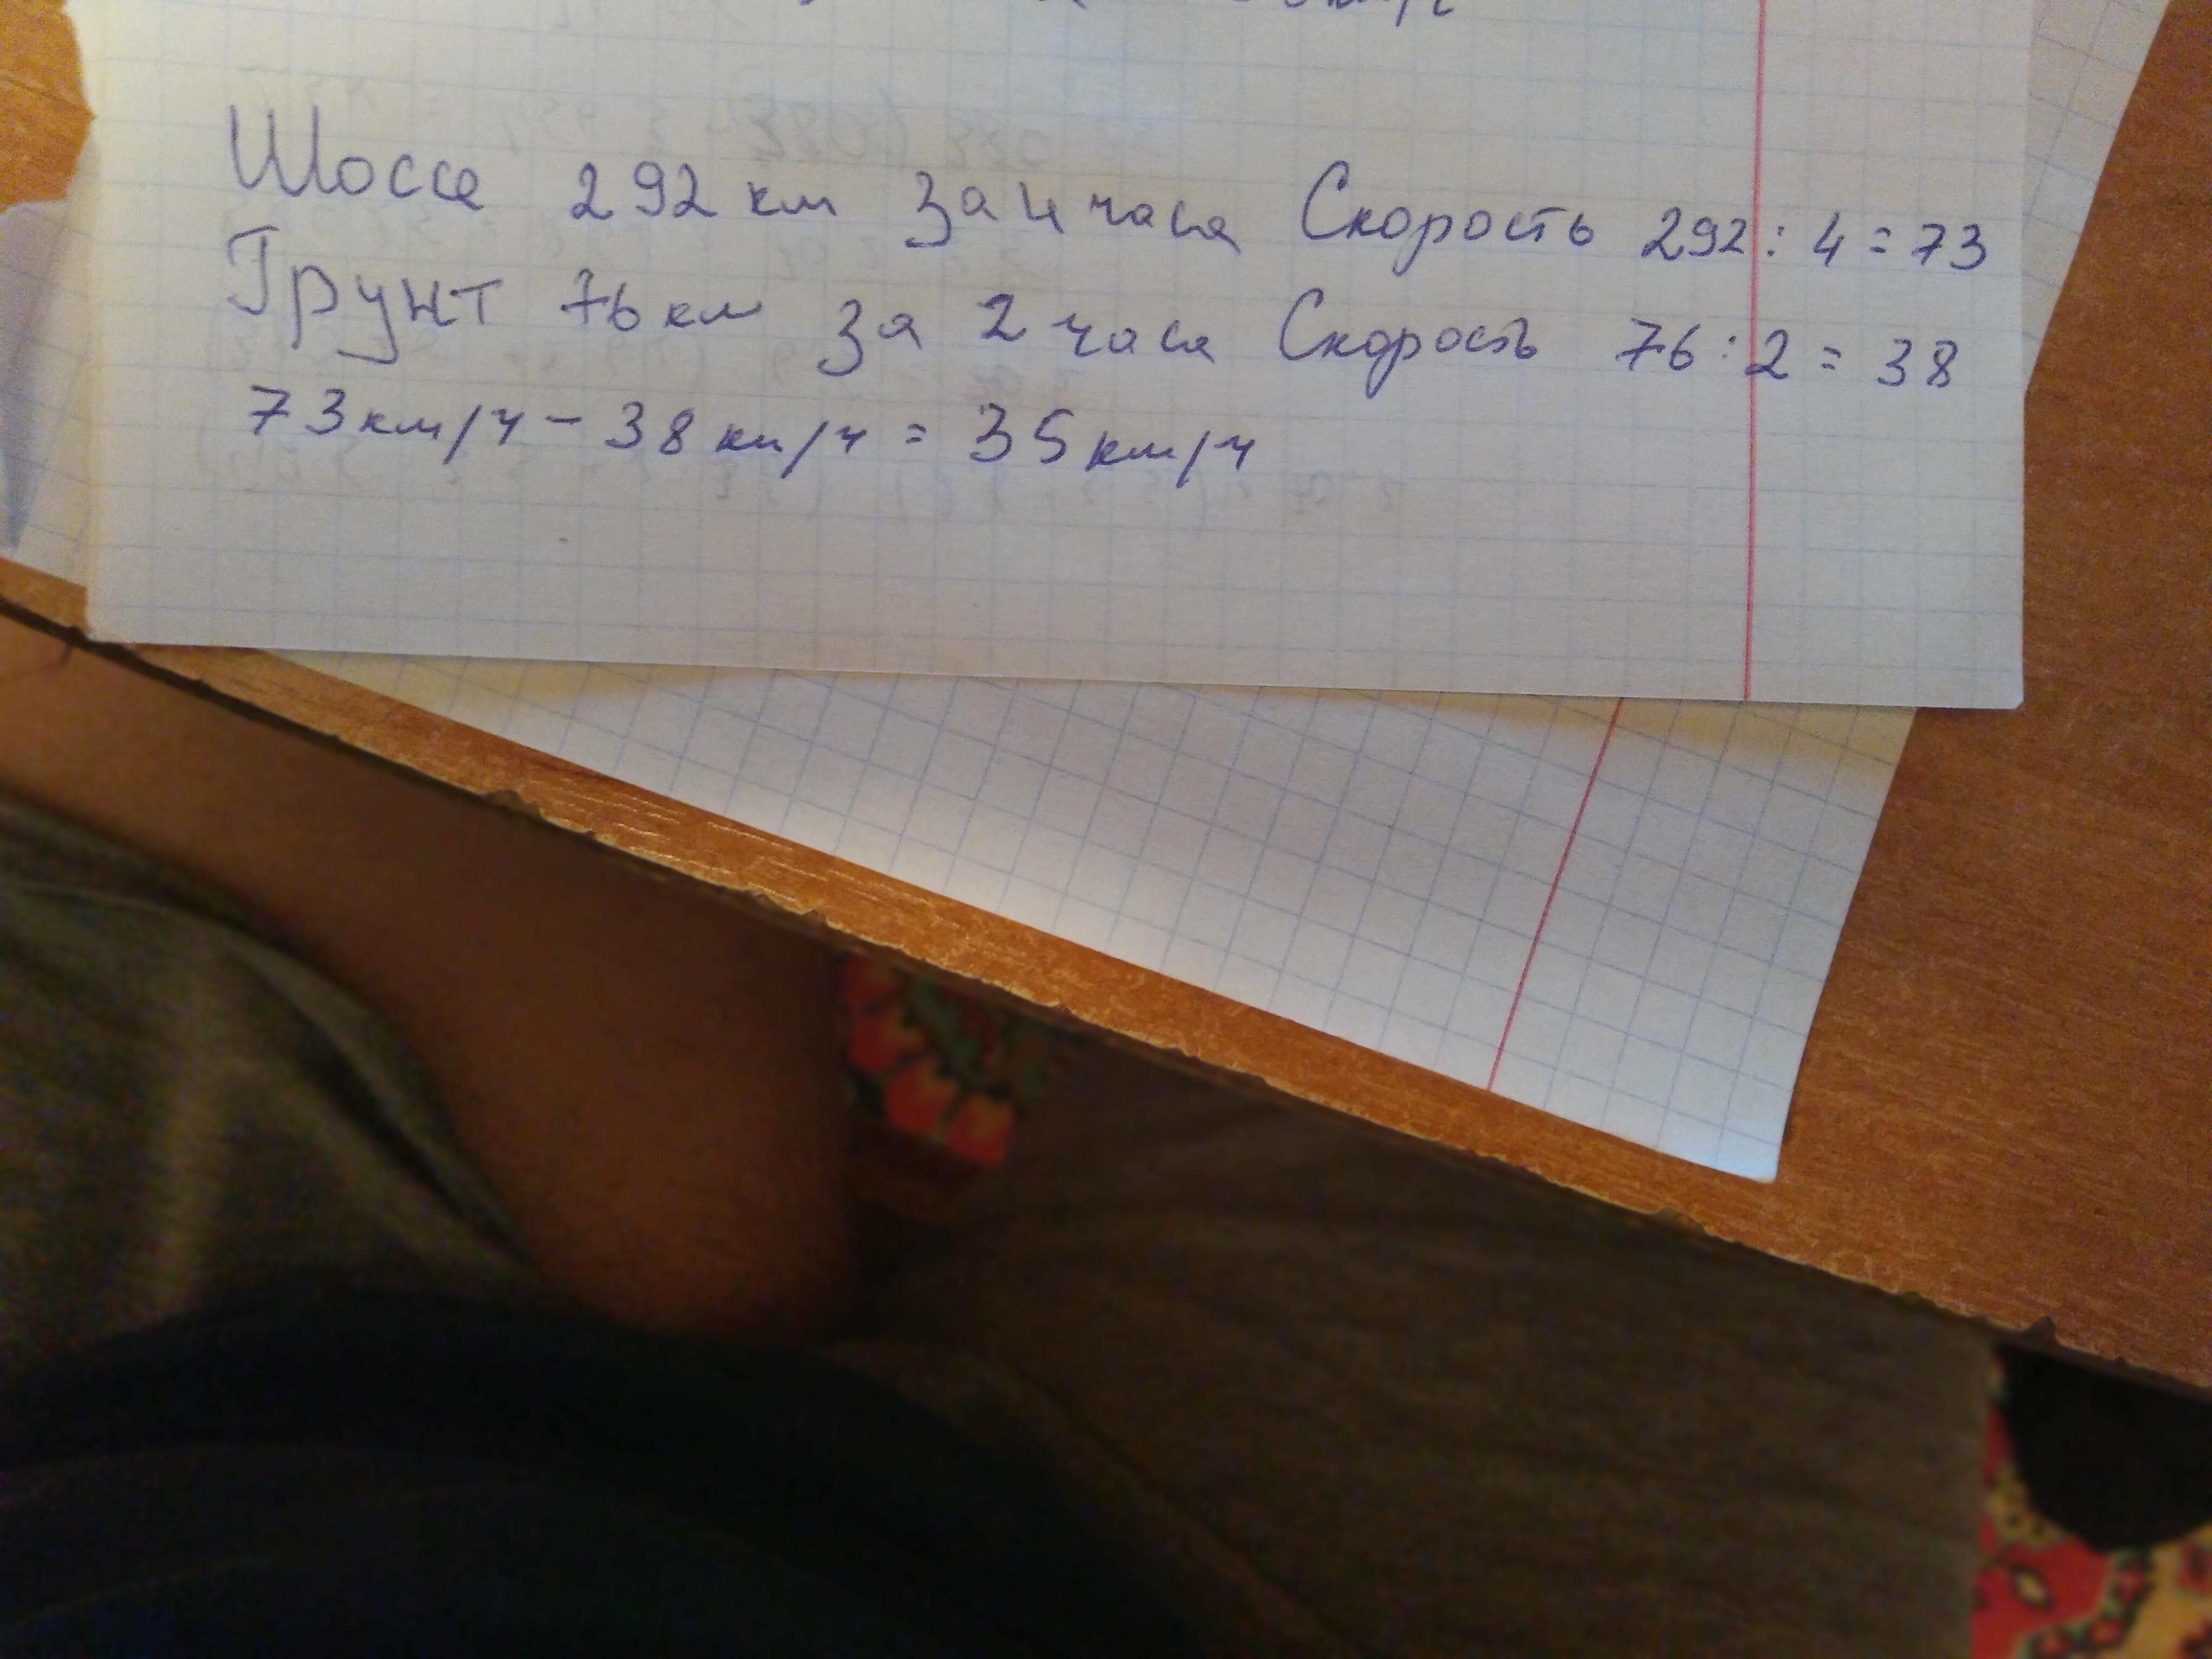 Шоссе 292 км за 4 часа Скорость 292 : 4 = 73
Грунт 76 км за 2 часа Скорость 76 : 2 = 38
73 км/ч - 38 км/ч = 35 км/ч